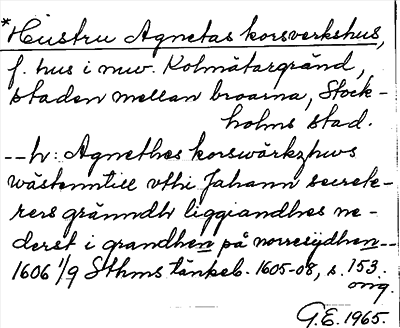 *Hustru Agnetas korsverkshus,
f. hus i nuv. Kolmätargränd,
staden mellan broarna, Stock-
holms stad.
-- h: Agnethes korswärkzhws
wästenntill vthi Jahann secrete-
rers gränndh liggiandhes ne-
derst i grandhen på norresijdhen--
1606 1/9 Sthms tänkeb. 1605-08, s. 153
omg.
G.E. 1965.